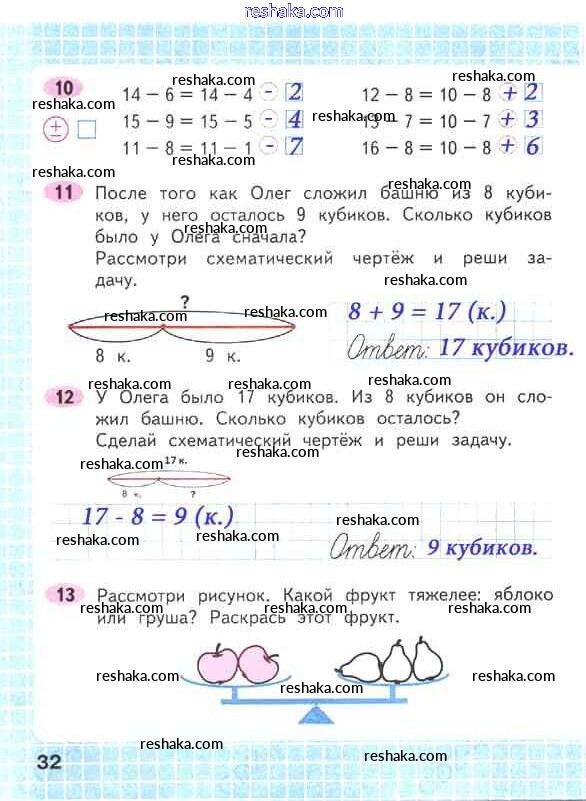 reshaka.com
reshaka.com reshaka.com
10 14 − 6 = 14 − 4 - 2 12 − 8 = 10 − 8 + 2
reshaka.com reshaka.com reshaka.com
± 15 − 9 = 15 − 5 - 4 13 − 7 = 10 − 7 + 3
reshaka.com reshaka.com
11 − 8 = 11 − 1 - 7 16 − 8 = 10 − 8 + 6
reshaka.com
11 После того как Олег сложил башню из 8 куби-
ков, у него осталось 9 кубиков. Сколько кубиков
reshaka.com
было у Олега сначала?
Рассмотри схематический чертёж и реши за-
reshaka.com reshaka.com
дачу.
?
reshaka.com reshaka.com
8 + 9 = 17 (к.)
8 к. 9 к.
Ответ: 17 кубиков.
reshaka.com reshaka.com
12 У Олега было 17 кубиков. Из 8 кубиков он сло-
reshaka.com
жил башню. Сколько кубиков осталось?
Сделай схематический чертёж и реши задачу.
reshaka.com 17 к. reshaka.com
8 к. ?
17 - 8 = 9 (к.)
reshaka.com
reshaka.com reshaka.com
Ответ: 9 кубиков.
13 Рассмотри рисунок. Какой фрукт тяжелее: яблоко
reshaka.com reshaka.com
или груша? Раскрась этот фрукт.
reshaka.com
reshaka.com reshaka.com
reshaka.com
32
reshaka.com reshaka.com